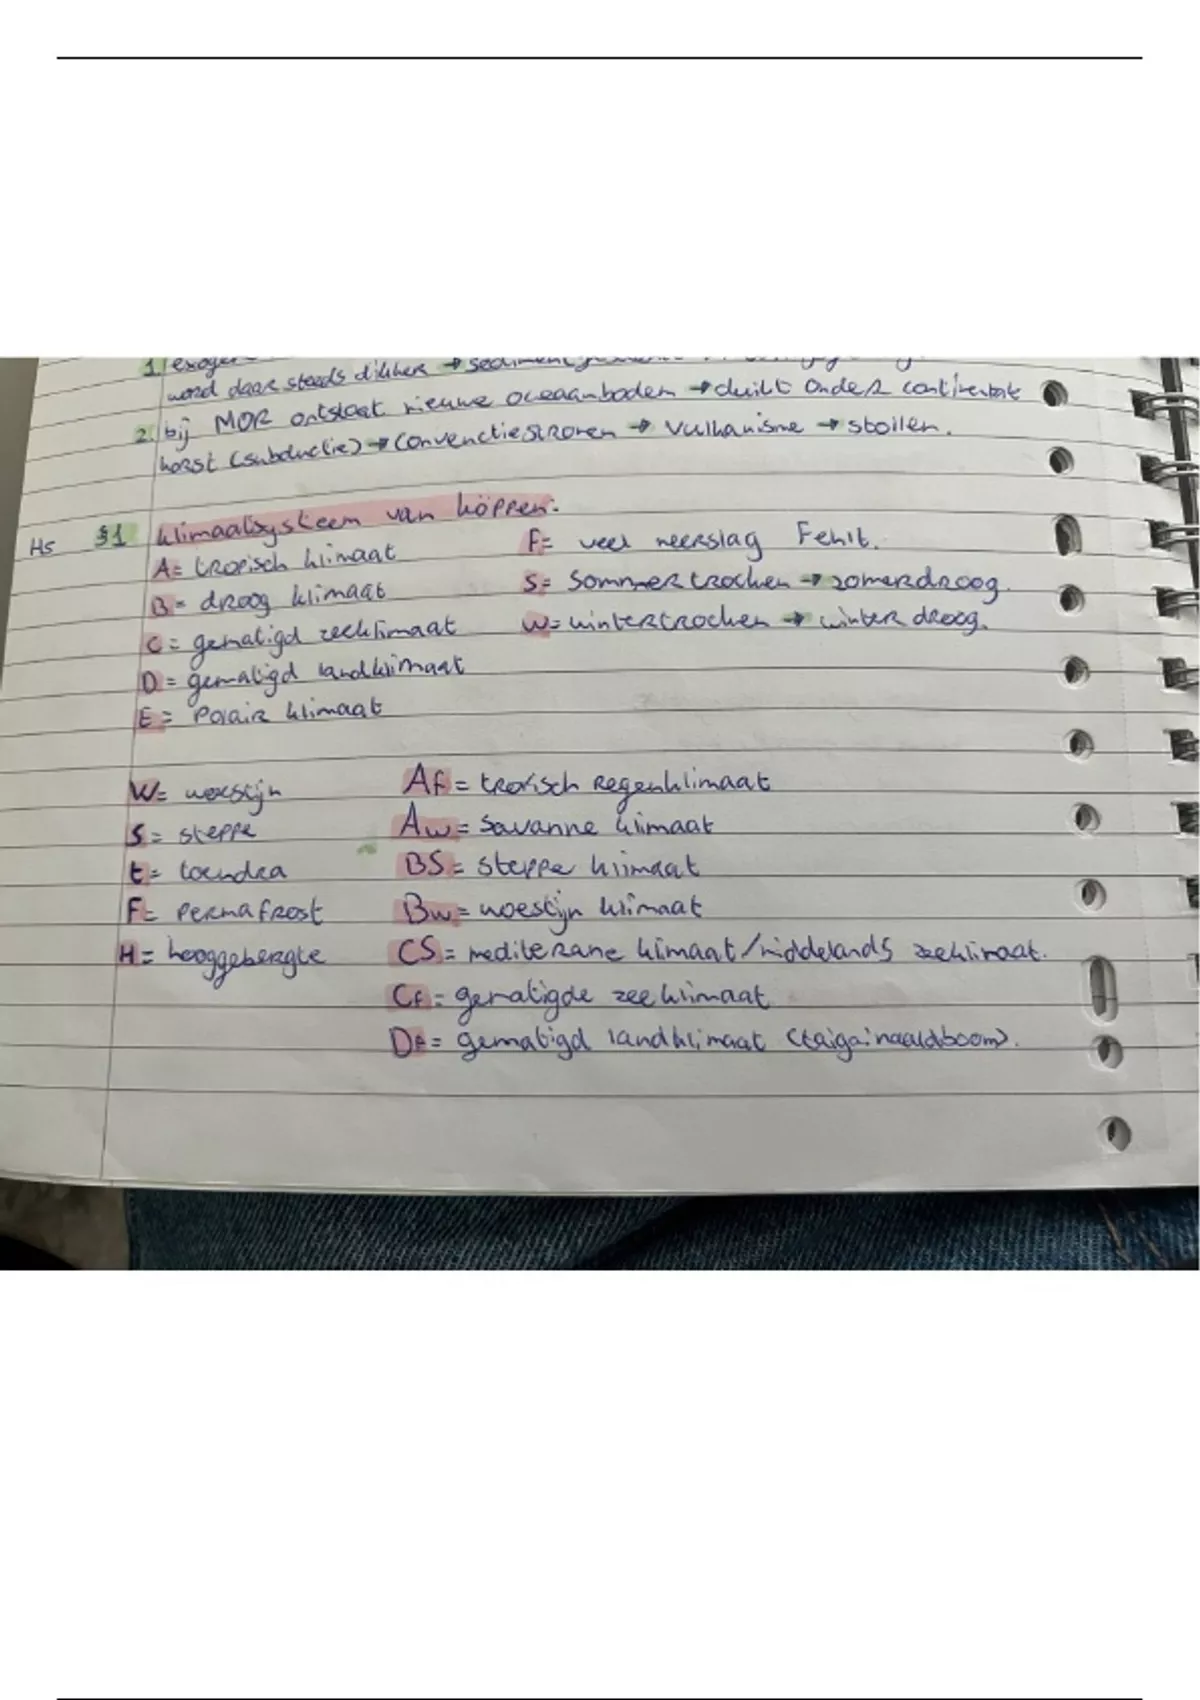 1. exogen
word daar steeds dikker → sediment
2. bij MOR ontstaat nieuwe oceaanbodem → duikt onder continentale
korst (subductie) → convenctiestromen → vulkanisme → stollen.
H5 §1 klimaatsysteem van köppen:
A= tropisch klimaat F= veel neerslag Fehlt.
B= droog klimaat S= Sommertrocken → zomerdroog.
C= gematigd zeeklimaat W= wintertrocken → winter droog.
D= gematigd landklimaat
E= Polair klimaat
W= woestijn Af= tropisch Regenklimaat
S= steppe Aw= Savanne klimaat
t= toendra BS= steppe klimaat
F= permafrost Bw= woestijn klimaat
H= hooggebergte CS= mediterane klimaat/middelands zeeklimaat.
Cf= gematigde zeeklimaat
DF= gematigd landklimaat (taiga:naaldboom).